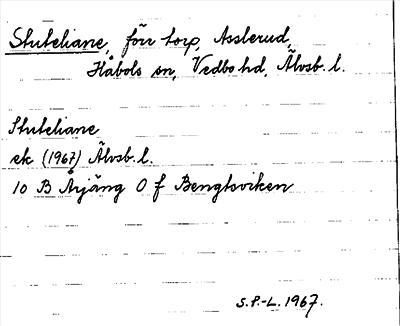 Stuteliane, förr torp, Asslerud,
Håbols sn, Vedbo hd, Älvsb. l.
Stuteliane
ek (1967) Älvsb. l.
10 B Årjäng 0 f Bengtsviken
S.P.-L. 1967.